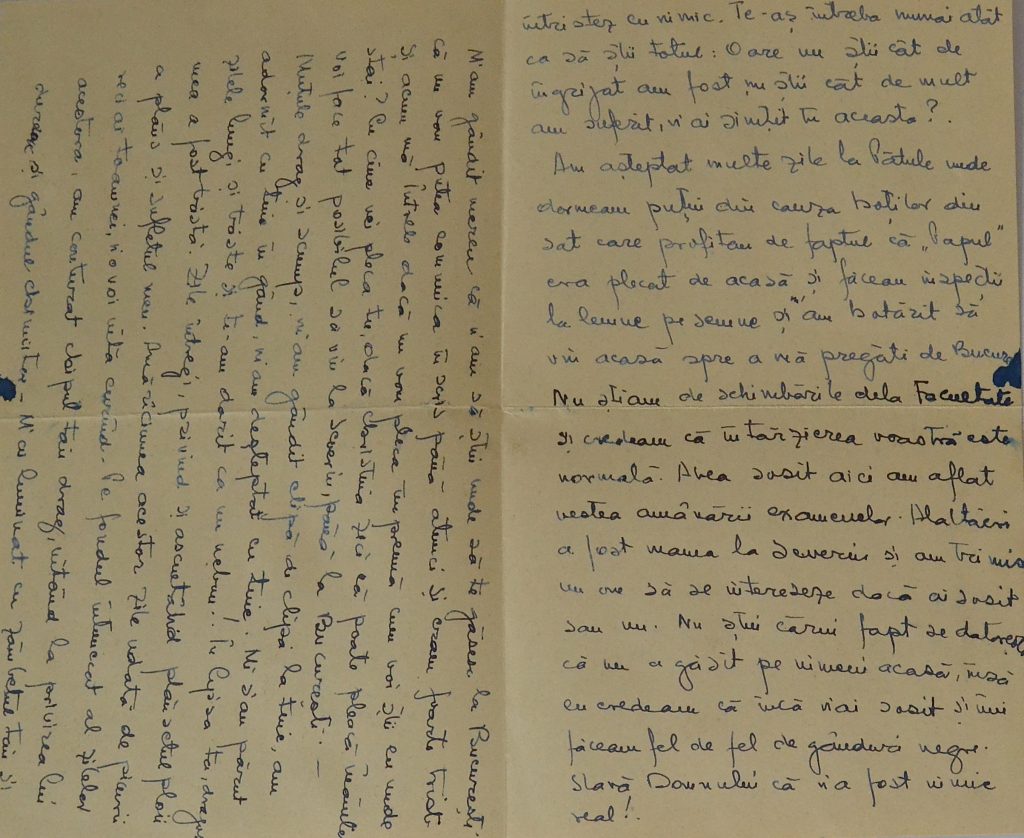 întristez cu nimic. Te-aș întreba numai atât
ca să știi totul: Oare nu știi cât de
îngrijat am fost, nu știi cât de mult
am suferit, n'ai simțit tu aceasta?
Am așteptat multe zile la Pătule unde
dormeam puțin din cauza hoților din
sat care profitau de faptul că „Papul"
era plecat de acasă și făceau inspecții
la lemne pe semne și am hotărît să
vin acasă spre a mă pregăti de Bucur
Nu știam de schimbările dela Facultate
și credeam că întârzierea voastră este
normală. Abea sosit aici am aflat
vestea amânării examenelor. Alaltăeri
a fost mama la Severin și am trimis
un om să se intereseze dacă ai sosit
sau nu. Nu știu cărui fapt se datorește
că nu a găsit pe nimeni acasă, însă
eu credeam că încă n'ai sosit și îmi
făceam fel de fel de gânduri negre.
Slavă Domnului că n'a fost nimic
real!
M'am gândit mereu că n'am să știu unde să te găsesc la București,
că nu vom putea comunica în scris până atunci și eram foarte trist
Și acum mă întreb dacă nu vom pleca împreună cum voi ști eu unde
stai? Cu cine vei pleca tu, dacă Christina zici că poate pleacă înainte
voi face tot posibilul să vin la Severin, până la București. –
Nuțule drag și scump, m'am gândit clipă de clipă la tine, am
adormit cu tine în gând, m'am deșteptat cu tine. Mi s'au părut
zilele lungi și triste și te-am dorit ca un nebun!. În lipsa ta, dragu
mea a fost tristă. Zile întregi, privind și ascultând plânsetul ploii
a plâns și sufletul meu. Amărăciunea acestor zile udate de picurii
reci ai toamnei, n'o voi uita curând. Pe fondul întunecat al zilelor
acestora, am conturat chipul tău drag, uitând la privirea lui
și gândul chinuitor – M'ai luminat cu zâmbetul tău și